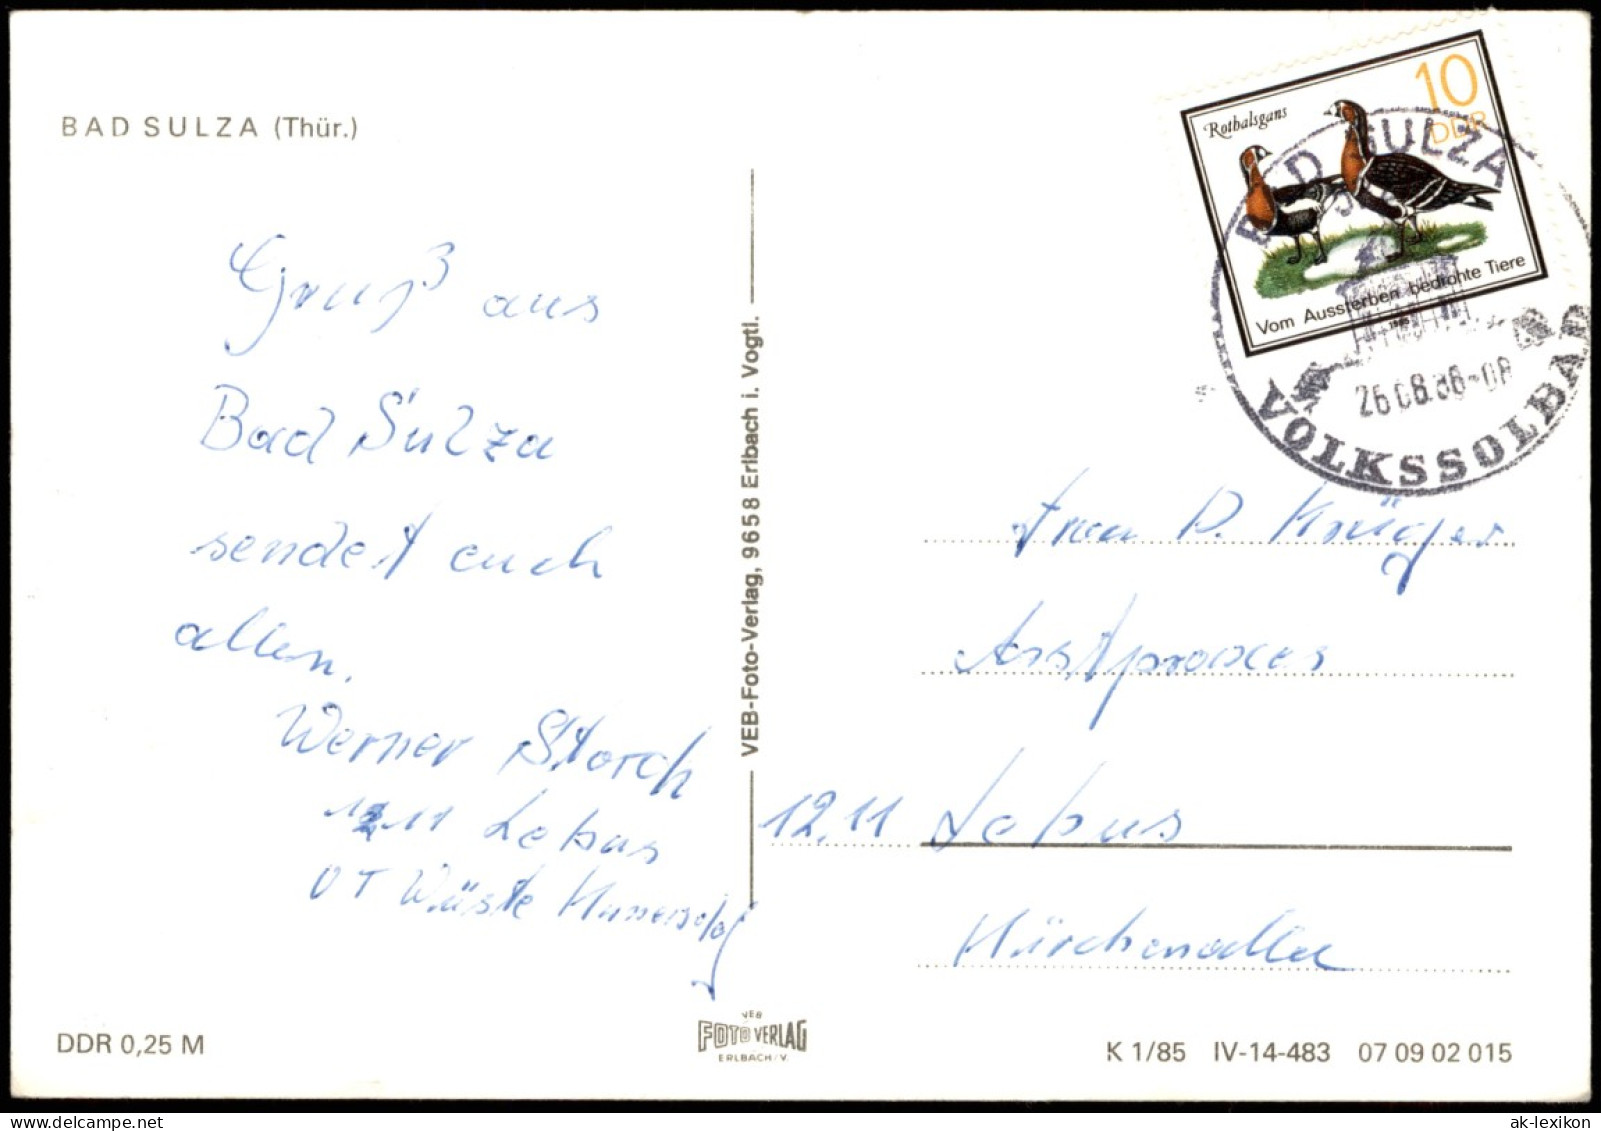 BAD SULZA (Thür.)
Gruß aus
Bad Sulza
sendet euch
allen.
Werner Storch
1211 Lebus
OT Wüste Kunersdorf
VEB-Foto-Verlag, 9658 Erlbach i. Vogtl.
Rothalsgans
10
DDR
Vom Aussterben bedrohte Tiere
1985
BAD SULZA
VOLKSSOLBAD
Frau D. Krüger
12.11 Lebus
DDR 0,25 M
VEB
FOTO VERLAG
ERLBACH/V.
K 1/85 IV-14-483 07 09 02 015
ak-lexikon